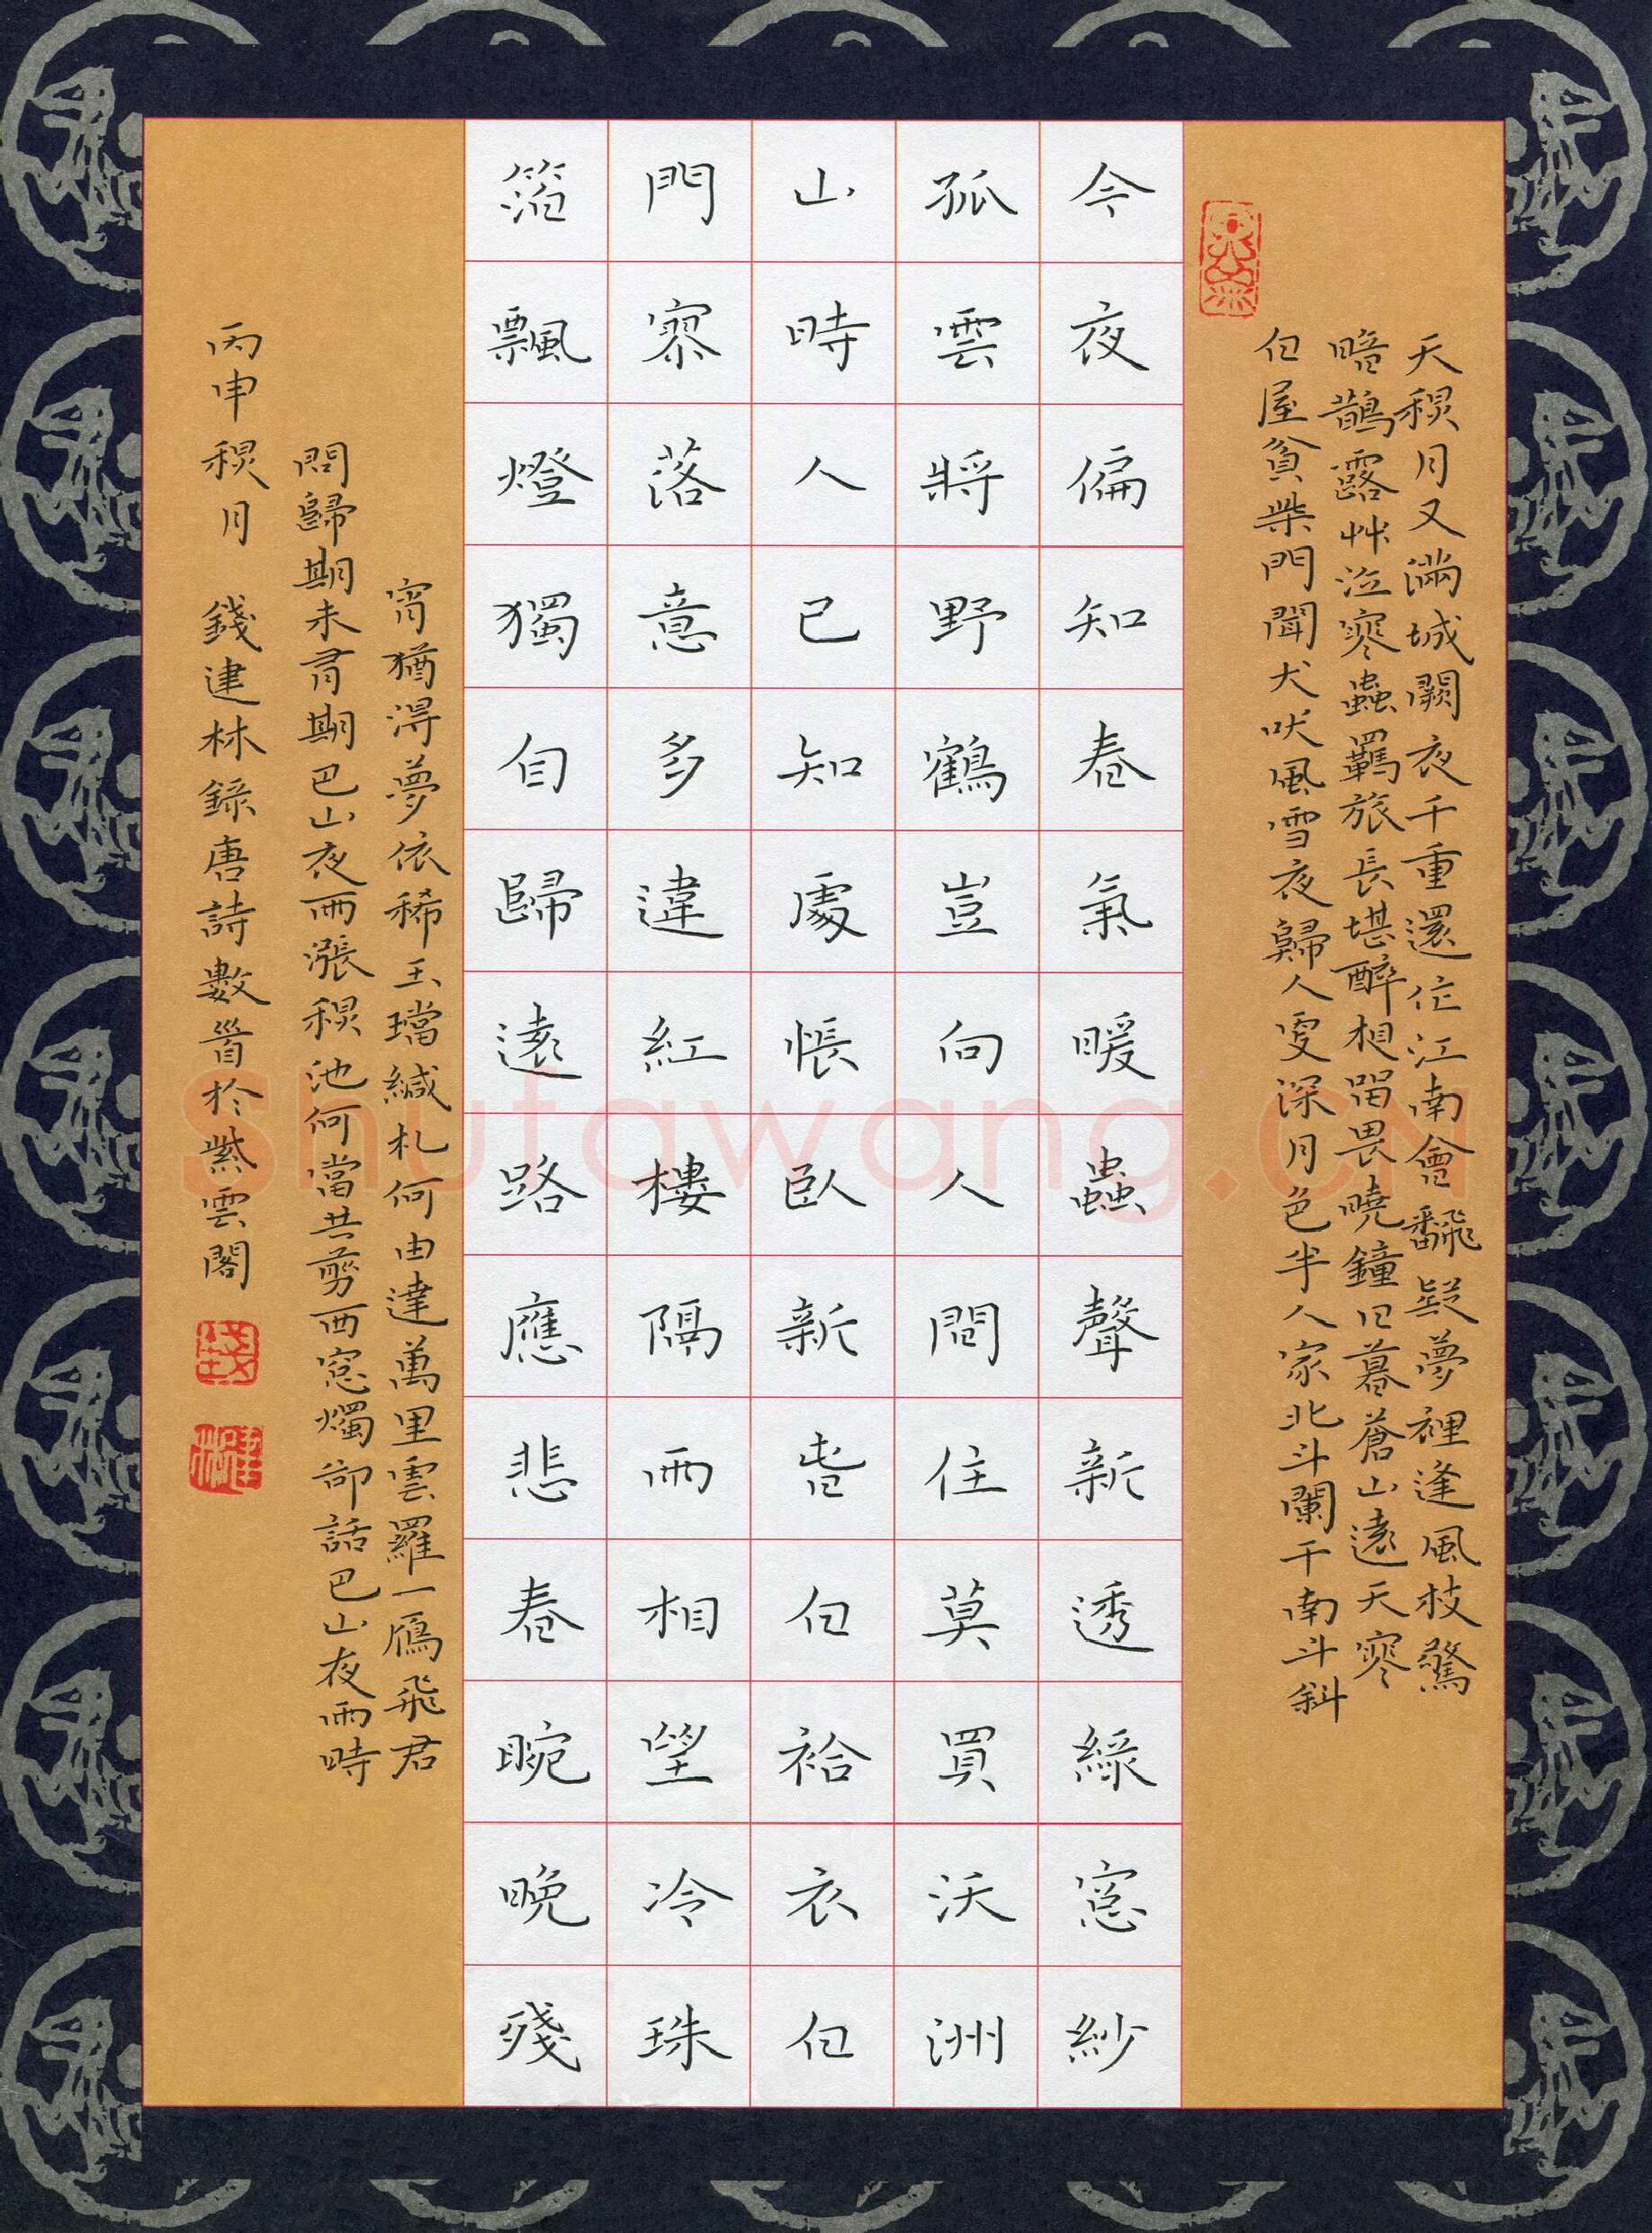 天秋月又滿城闕夜千重還作江南會飜疑夢裡逢風枝驚
暗鵲露艸泣寒蟲羈旅長堪醉相畱畏曉鐘日暮蒼山遠天寒
白屋貧柴門聞犬吠風雪夜歸人更深月色半人家北斗闌干南斗斜
今夜偏知春氣暖蟲聲新透綠窗紗
孤雲將野鶴豈向人間住莫買沃洲
山時人已知處悵臥新春白袷衣白
門寥落意多違紅樓隔雨相望冷珠
箔飄燈獨自歸遠路應悲春晼晚殘
宵猶得夢依稀玉璫緘札何由達萬里雲羅一鴈飛君
問歸期未有期巴山夜雨漲秋池何當共剪西窗燭卻話巴山夜雨時
丙申秋月 錢建林錄唐詩數首於紫雲閣
錢
建林
Shufawang.CN